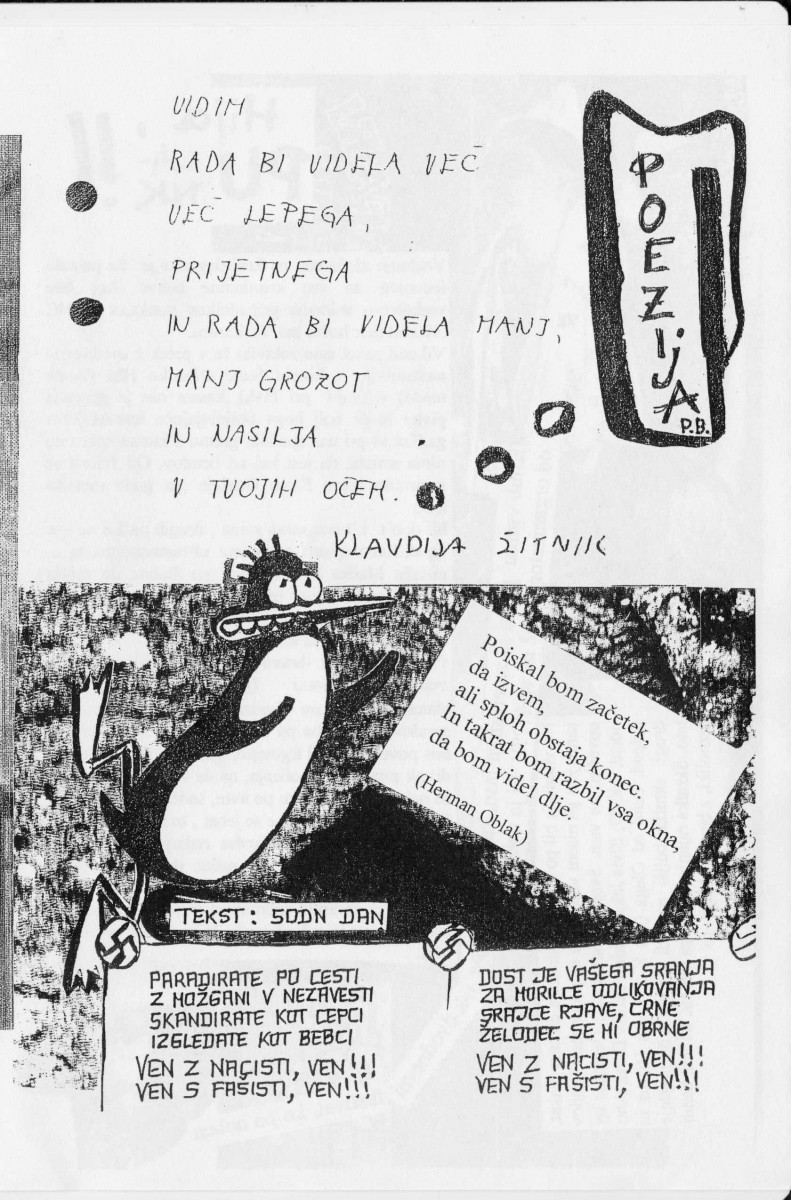 POEZIJA
P.B.
VIDIM
RADA BI VIDELA VEČ
VEČ LEPEGA,
PRIJETNEGA
IN RADA BI VIDELA MANJ,
MANJ GROZOT
IN NASILJA
V TVOJIH OČEH.
KLAVDIJA ŽITNIK
Poiskal bom začetek,
da izvem,
ali sploh obstaja konec.
In takrat bom razbil vsa okna,
da bom videl dlje.
(Herman Oblak)
TEKST: SODN DAN
PARADIRATE PO CESTI
Z MOŽGANI V NEZAVESTI
SKANDIRATE KOT CEPCI
IZGLEDATE KOT BEBCI
VEN Z NACISTI, VEN!!!
VEN S FAŠISTI, VEN!!!
DOST JE VAŠEGA SRANJA
ZA MORILCE ODLIKOVANJA
SRAJCE RJAVE, ČRNE
ŽELODEC SE MI OBRNE
VEN Z NACISTI, VEN!!!
VEN S FAŠISTI, VEN!!!